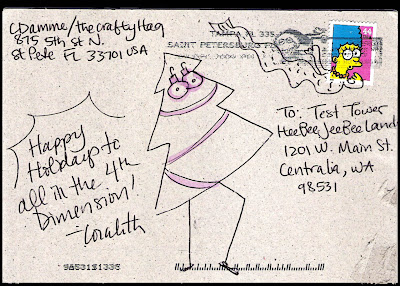 CDamme/the crafty Hag
875 5th St N.
St Pete FL 33701 USA
TAMPA FL 335
SAINT PETERSBURG FL
44
To: Test Tower
HeeBeeJeeBeeLand
1201 W. Main St.
Centralia, WA
98531
Happy
Holidays to
all in the 4th
Dimension!
-Coralith